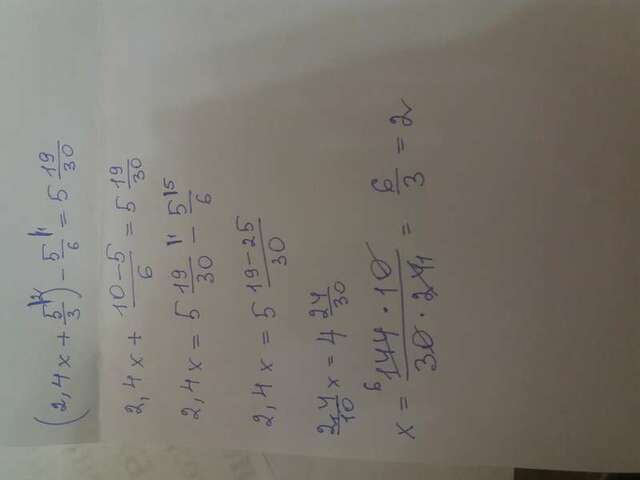 (2,4x + 5/3 |2) - 5/6 |1 = 5 19/30
2,4x + 10-5/6 = 5 19/30
2,4x = 5 19/30 |1 - 5/6 |5
2,4x = 5 19-25/30
24/10 x = 4 24/30
x = 6 144 · 10/30 · 24 1 = 6/3 = 2